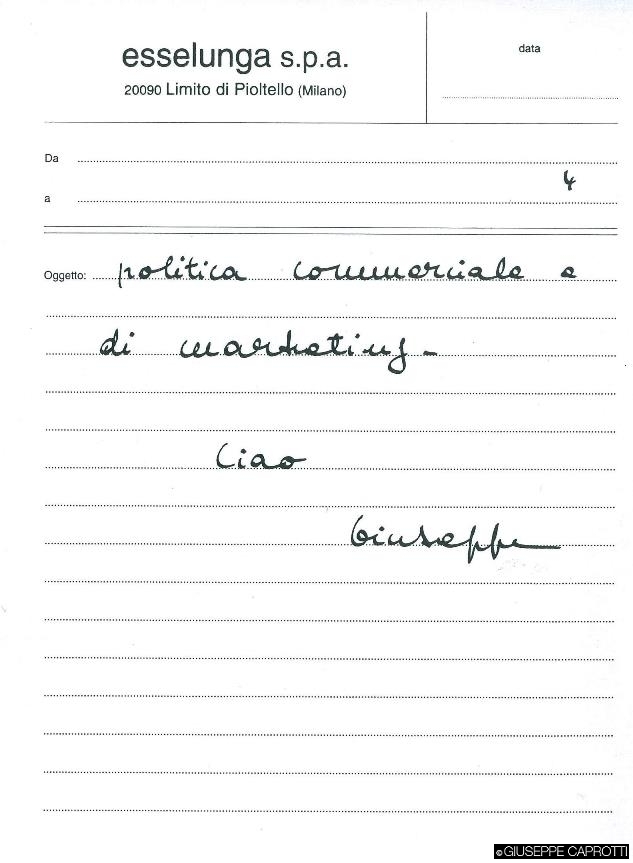 esselunga s.p.a.
20090 Limito di Pioltello (Milano)
data
Da
4
a
Oggetto: politica commerciale e
di marketing -
Ciao
Giuseppe
©GIUSEPPE CAPROTTI